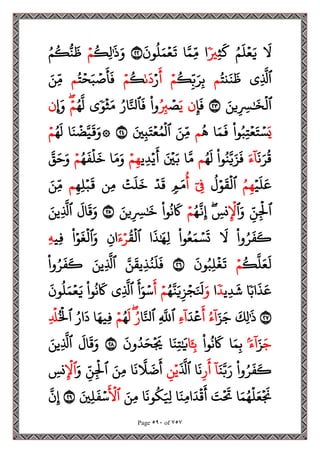 لَا يَعْلَمُ كَثِيرًا مِّمَّا تَعْمَلُونَ ٢٢ وَذَٰلِكُمْ ظَنُّكُمُ
ٱلَّذِي ظَنَنتُم بِرَبِّكُمْ أَرْدَىٰكُمْ فَأَصْبَحْتُم مِّنَ
ٱلْخَٰسِرِينَ ٢٣ فَإِن يَصْبِرُوا۟ فَٱلنَّارُ مَثْوًى لَّهُمْ وَإِن
يَسْتَعْتِبُوا۟ فَمَا هُم مِّنَ ٱلْمُعْتَبِينَ ٢٤ ۞ وَقَيَّضْنَا لَهُمْ
قُرَنَآءَ فَزَيَّنُوا۟ لَهُم مَّا بَيْنَ أَيْدِيهِمْ وَمَا خَلْفَهُمْ وَحَقَّ
عَلَيْهِمُ ٱلْقَوْلُ فِىٓ أُمَمٍ قَدْ خَلَتْ مِن قَبْلِهِم مِّنَ
ٱلْجِنِّ وَٱلْإِنسِ إِنَّهُمْ كَانُوا۟ خَٰسِرِينَ ٢٥ وَقَالَ ٱلَّذِينَ
كَفَرُوا۟ لَا تَسْمَعُوا۟ لِهَٰذَا ٱلْقُرْءَانِ وَٱلْغَوْا۟ فِيهِ
لَعَلَّكُمْ تَغْلِبُونَ ٢٦ فَلَنُذِيقَنَّ ٱلَّذِينَ كَفَرُوا۟
عَذَابًا شَدِيدًا وَلَنَجْزِيَنَّهُمْ أَسْوَأَ ٱلَّذِي كَانُوا۟ يَعْمَلُونَ
٢٧ ذَٰلِكَ جَزَآءُ أَعْدَآءِ ٱللَّهِ ٱلنَّارُ لَهُمْ فِيهَا دَارُ ٱلْخُلْدِ
جَزَآءً بِمَا كَانُوا۟ بِـَٔايَٰتِنَا يَجْحَدُونَ ٢٨ وَقَالَ ٱلَّذِينَ
كَفَرُوا۟ رَبَّنَآ أَرِنَا ٱلَّذَيْنِ أَضَلَّانَا مِنَ ٱلْجِنِّ وَٱلْإِنسِ
نَجْعَلْهُمَا تَحْتَ أَقْدَامِنَا لِيَكُونَا مِنَ ٱلْأَسْفَلِينَ ٢٩ إِنَّ
Page ٥٩٠ of ٧٥٧